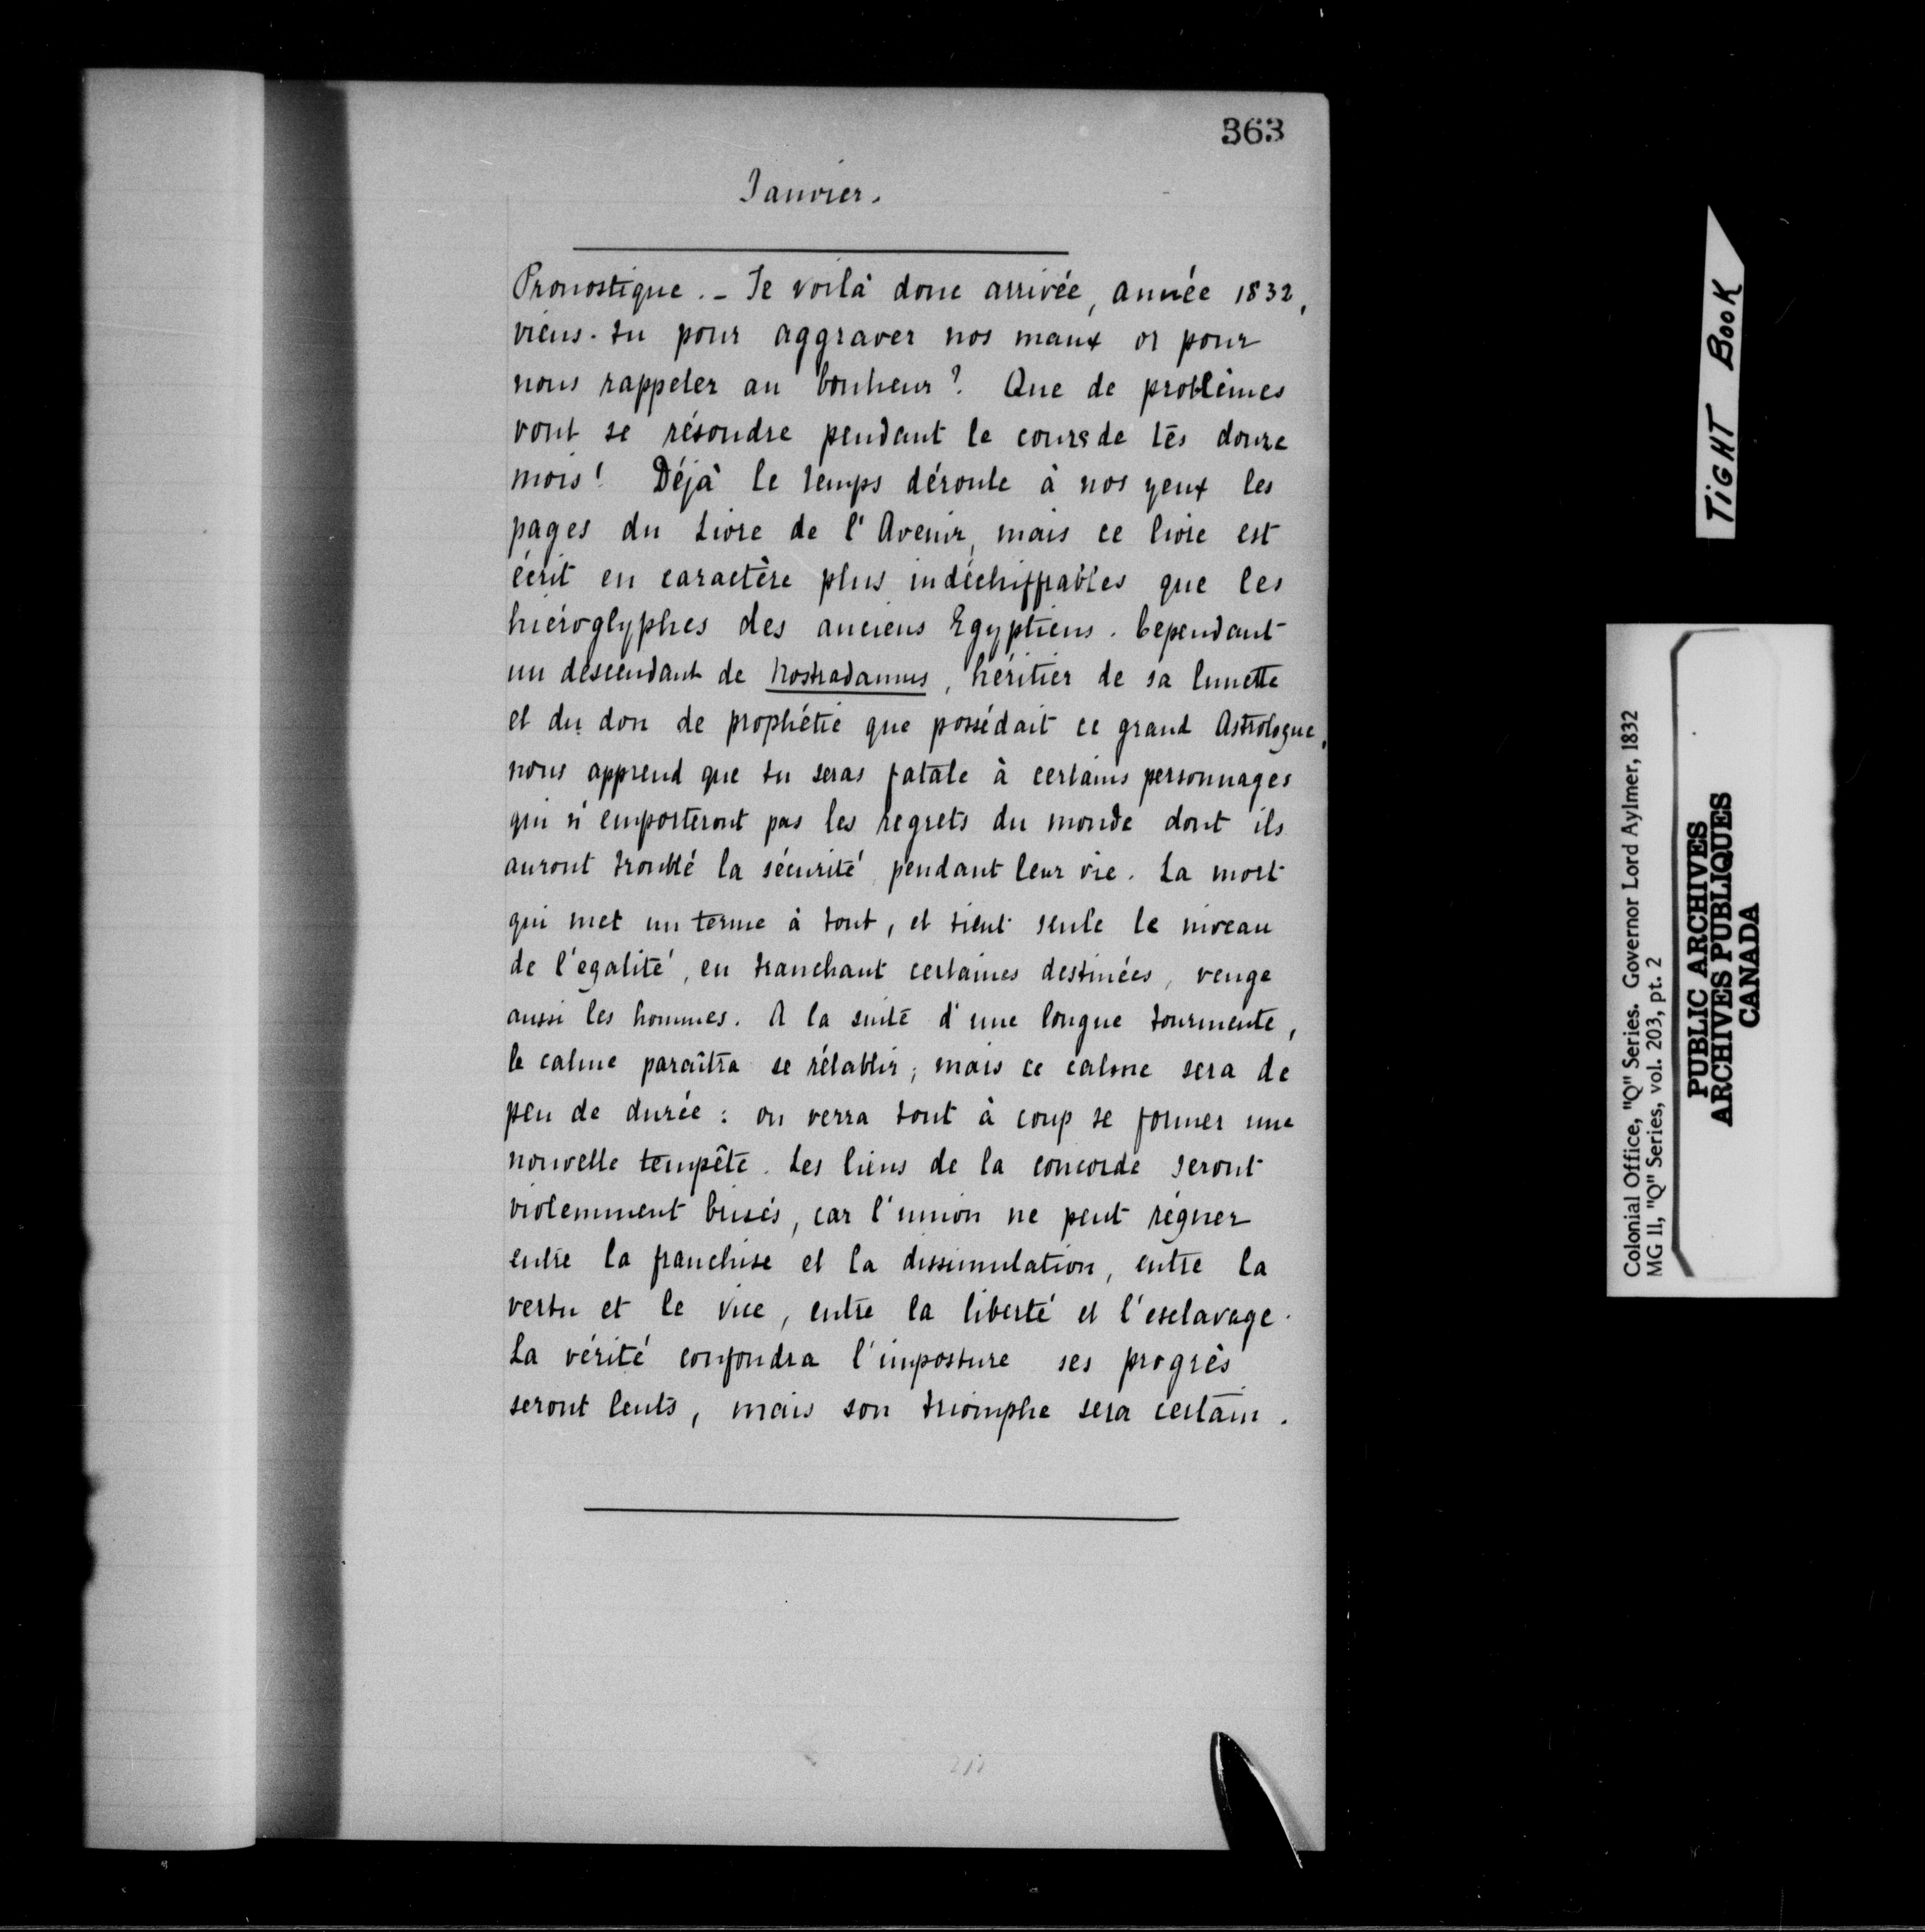 363
Janvier.
Pronostique. - Te voilà donc arrivée, année 1832,
viens-tu pour aggraver nos maux or pour
nous rappeler au bonheur? Que de problèmes
vont se résoudre pendant le cours de tes douze
mois! Déjà le temps déroule à nos yeux les
pages du Livre de l'Avenir, mais ce livre est
écrit en caractère plus indéchiffrables que les
hiéroglyphes des anciens Egyptiens. Cependant
un descendant de Nostradamus, héritier de sa lunette
et du don de prophétie que possédait ce grand Astrologue,
nous apprend que tu seras fatale à certains personnages
qui n'emporteront pas les regrets du monde dont ils
auront troublé la sécurité pendant leur vie. La mort
qui met un terme à tout, et tient seule le niveau
de l'égalité, en tranchant certaines destinées, venge
aussi les hommes. A la suite d'une longue tourmente,
le calme paraîtra se rétablir; mais ce calme sera de
peu de durée: on verra tout à coup se former une
nouvelle tempête. Les liens de la concorde seront
violemment brisés, car l'union ne peut régner
entre la franchise et la dissimulation, entre la
vertu et le vice, entre la liberté et l'esclavage.
La vérité confondra l'imposture ses progrès
seront lents, mais son triomphe sera certain.
TIGHT BOOK
Colonial Office, "Q" Series. Governor Lord Aylmer, 1832
MG 11, "Q" Series, vol. 203, pt. 2
PUBLIC ARCHIVES
ARCHIVES PUBLIQUES
CANADA